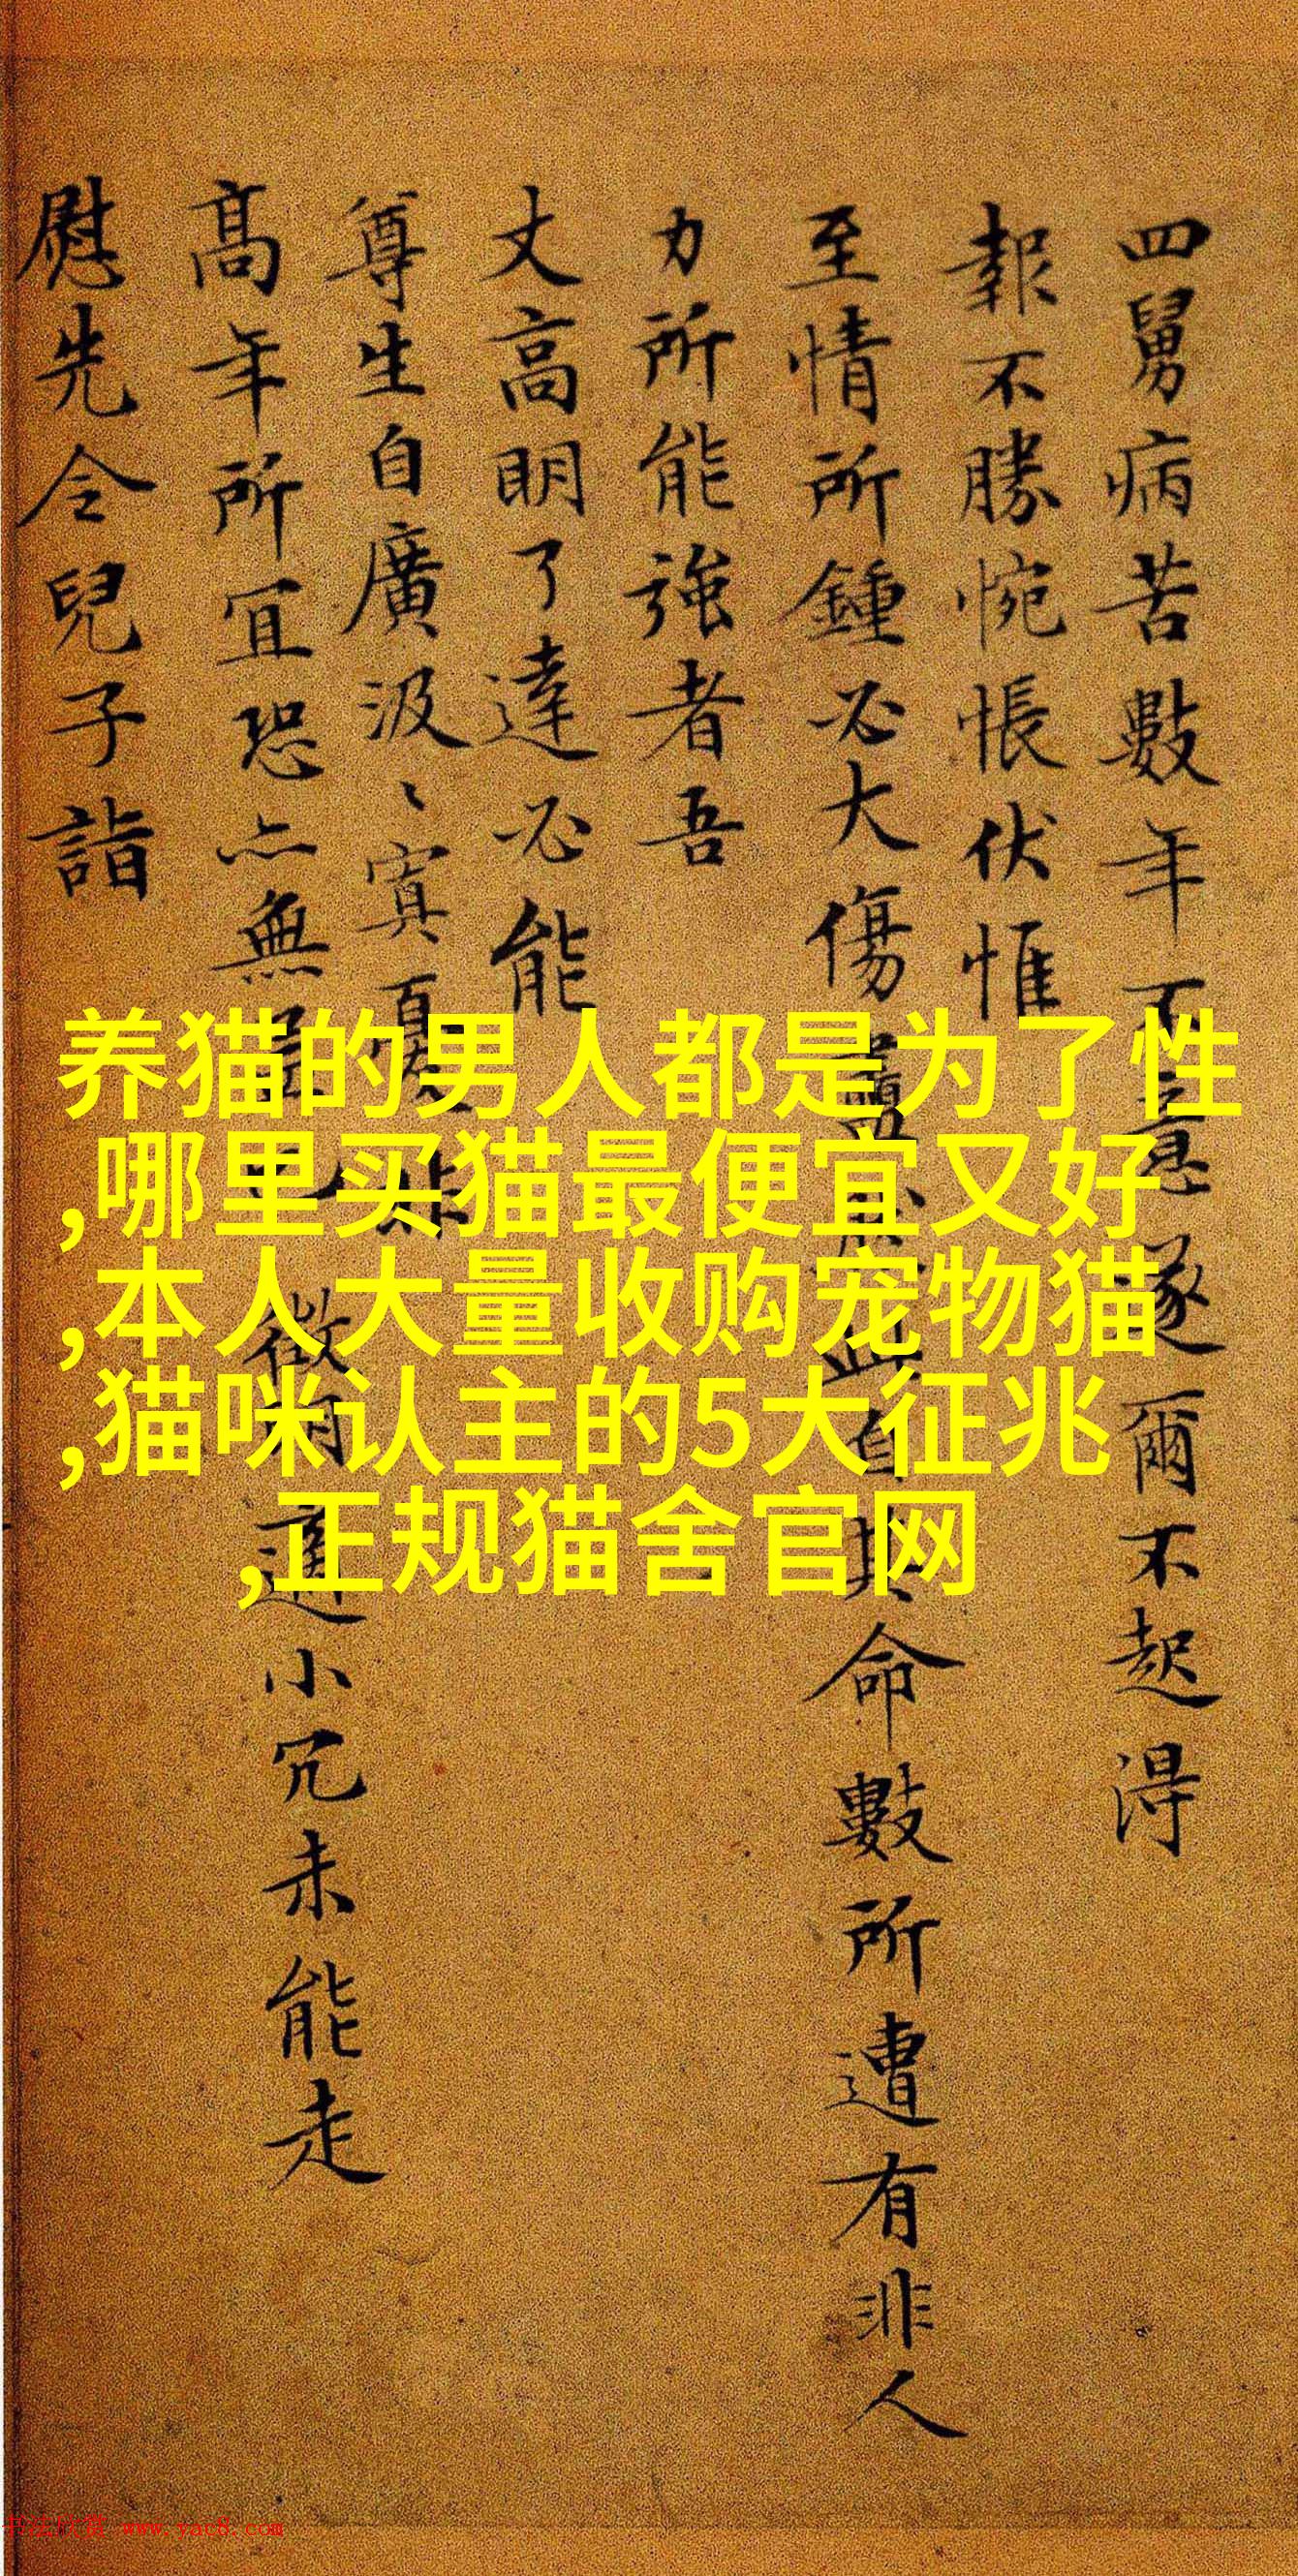 四舅病苦數年不意遂爾不起得
報不勝惋悵伏惟
至情所鍾必大傷
命數所遭有非人
力所能強者吾
丈高明了達必能
尊生自廣汲〻寘
高年所宜恐亦無
小冗未能走
慰先令兒子詣
养猫的男人都是为了性
,哪里买猫最便宜又好
,本人大量收购宠物猫
,猫咪认主的5大征兆
,正规猫舍官网
书法欣赏 www.yac8.com